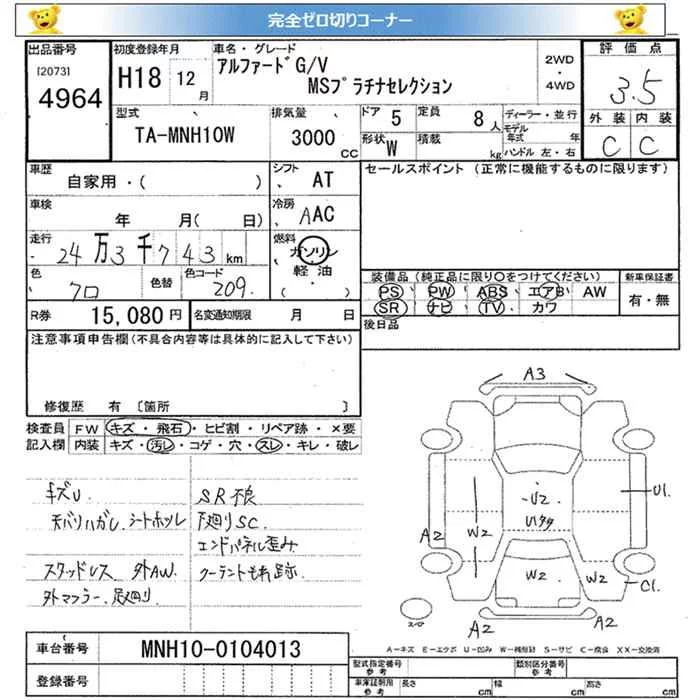 完全ゼロ切りコーナー
出品番号
[2073]
4964
初度登録年月
H18 12月
車名・グレード
アルファードG/V
MSプラチナセレクション
2WD
・
4WD
評価点
3.5
外装 内装
C C
型式
TA-MNH10W
排気量
3000 CC
ドア 5
定員 8人
形状 W
積載 kg
ディーラー・並行
モデル年式 年
ハンドル 左・右
車歴
自家用・( )
シフト
AT
セールスポイント (正常に機能するものに限ります)
車検
年 月( 日)
冷房
AAC
走行
24万3千743km
燃料
ガソリン
軽油
・( )
色
クロ
色替
色コード
209
装備品(純正品に限り○をつけてください)
PS・PW・ABS・エアB・AW
SR・ナビ・TV・カワ
新車保証書
有・無
R券 15,080円
名変通知期限 月 日
後日品
注意事項申告欄(不具合内容等は具体的に記入して下さい)
修復歴 有 〔箇所 〕
検査員記入欄
FW キズ・飛石・ヒビ割・リペア跡・×要
内装 キズ・汚レ・コゲ・穴・スレ・キレ・破レ
キズU.
天バリハガレ. シートホツレ
スタッドレス 外AW.
外マフラー. 足廻り
SR不良
下廻りSC.
エンドパネル歪み
クーラントもれ跡
A3
U2
W2
U1.
A2
W2
W2
C1.
A2
A2
スペア
A-キズ E-エクボ U-凹み W-補修跡 S-サビ C-腐食 XX-交換済
車台番号 MNH10-0104013
登録番号
型式指定番号 参考
類別区分番号 参考
車庫証明用 参考
長さ cm
幅 cm
高さ cm